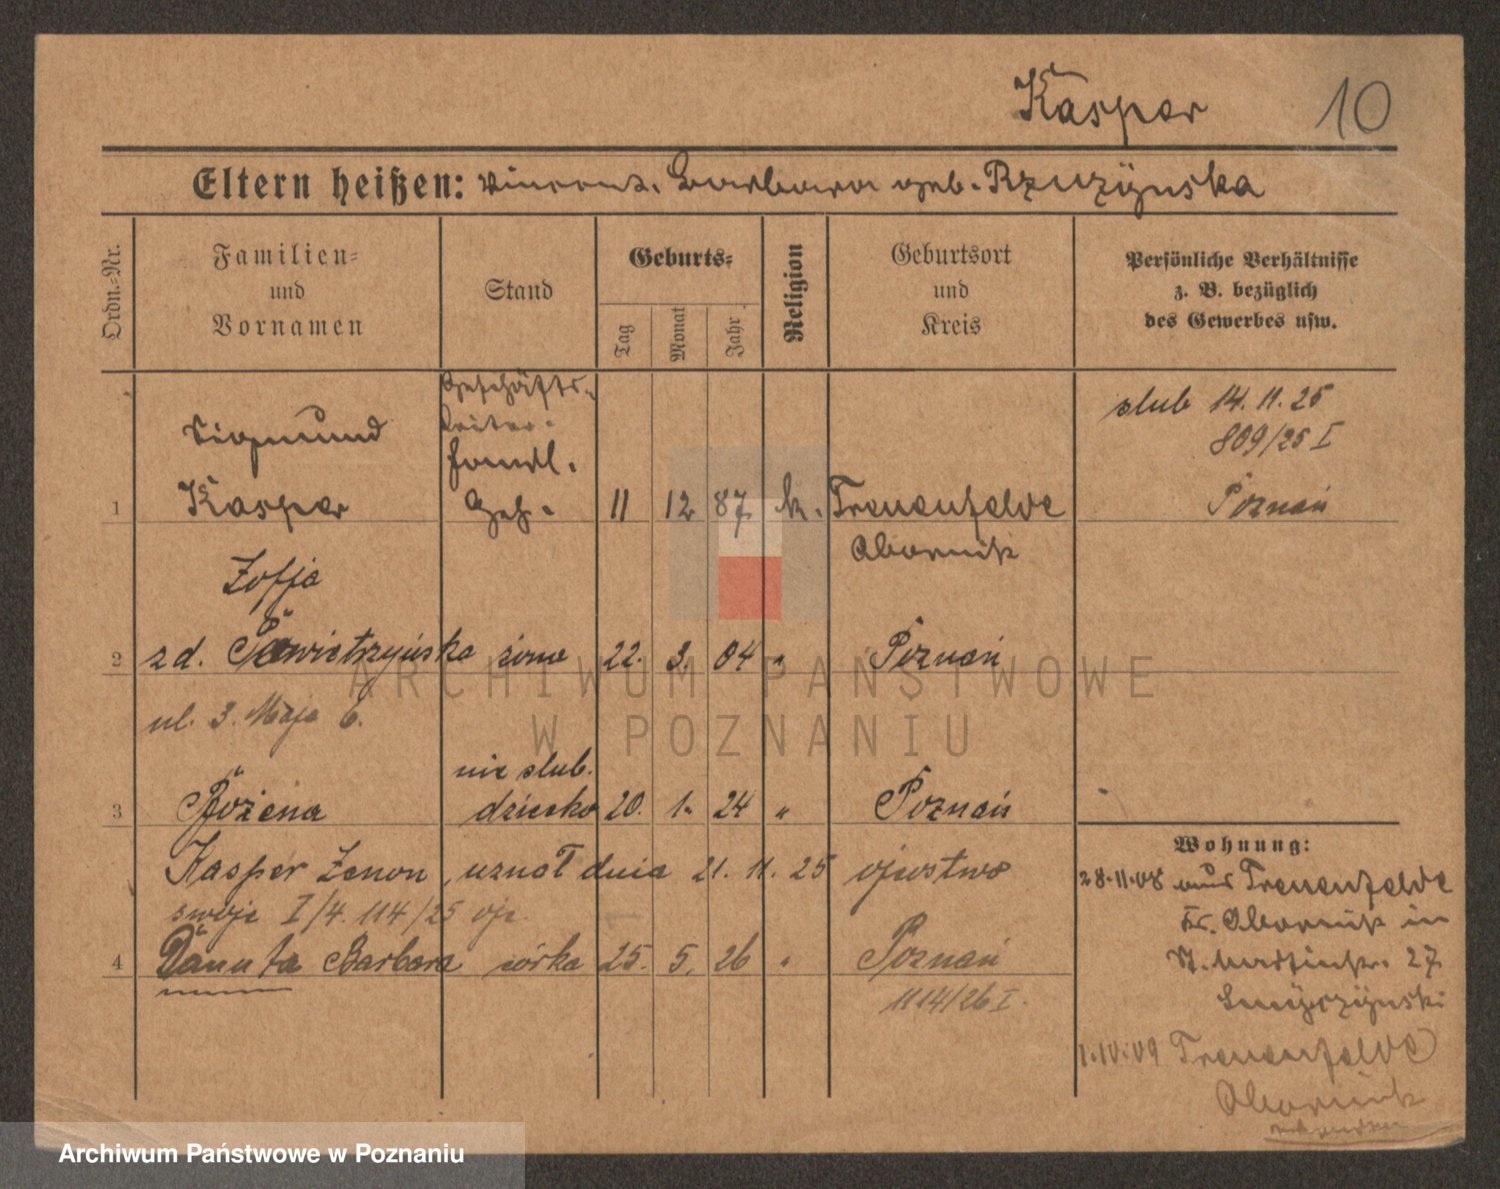 Kasper 10
Eltern heißen: Vincent. Barbara geb. Rzuzynska
Ordn.-Nr.
Familien-
und
Vornamen
Stand
Geburts-
Tag
Monat
Jahr
Religion
Geburtsort
und
Kreis
Persönliche Verhältnisse
z. B. bezüglich
des Gewerbes usw.
Geschäfts-
Sigmund
ślub 14.11.25
809/25 I
Handl.
1 Kasper Geh. 11 12 87 k. Treuenfelde Poznań
Obornik
Zofja
2 z d. żona 22. 3. 04 " Poznań
ul. 3. Maja 6.
nie ślub.
3 Bożena dziecko 20. 1. 24 " Poznań
Kasper Zenon, uznał dnia 21. 11. 25 ojcostwo
swoje I/4. 114/25 oje
4 Danuta Barbara córka 25. 5. 26 " Poznań
1114/26 I.
Wohnung:
28.11.08 aus Treuenfelde
Kr. Obornik in
St. Martinstr. 27
1.10.09 Treuenfelde
Obornik
ARCHIWUM PAŃSTWOWE
W POZNANIU
Archiwum Państwowe w Poznaniu